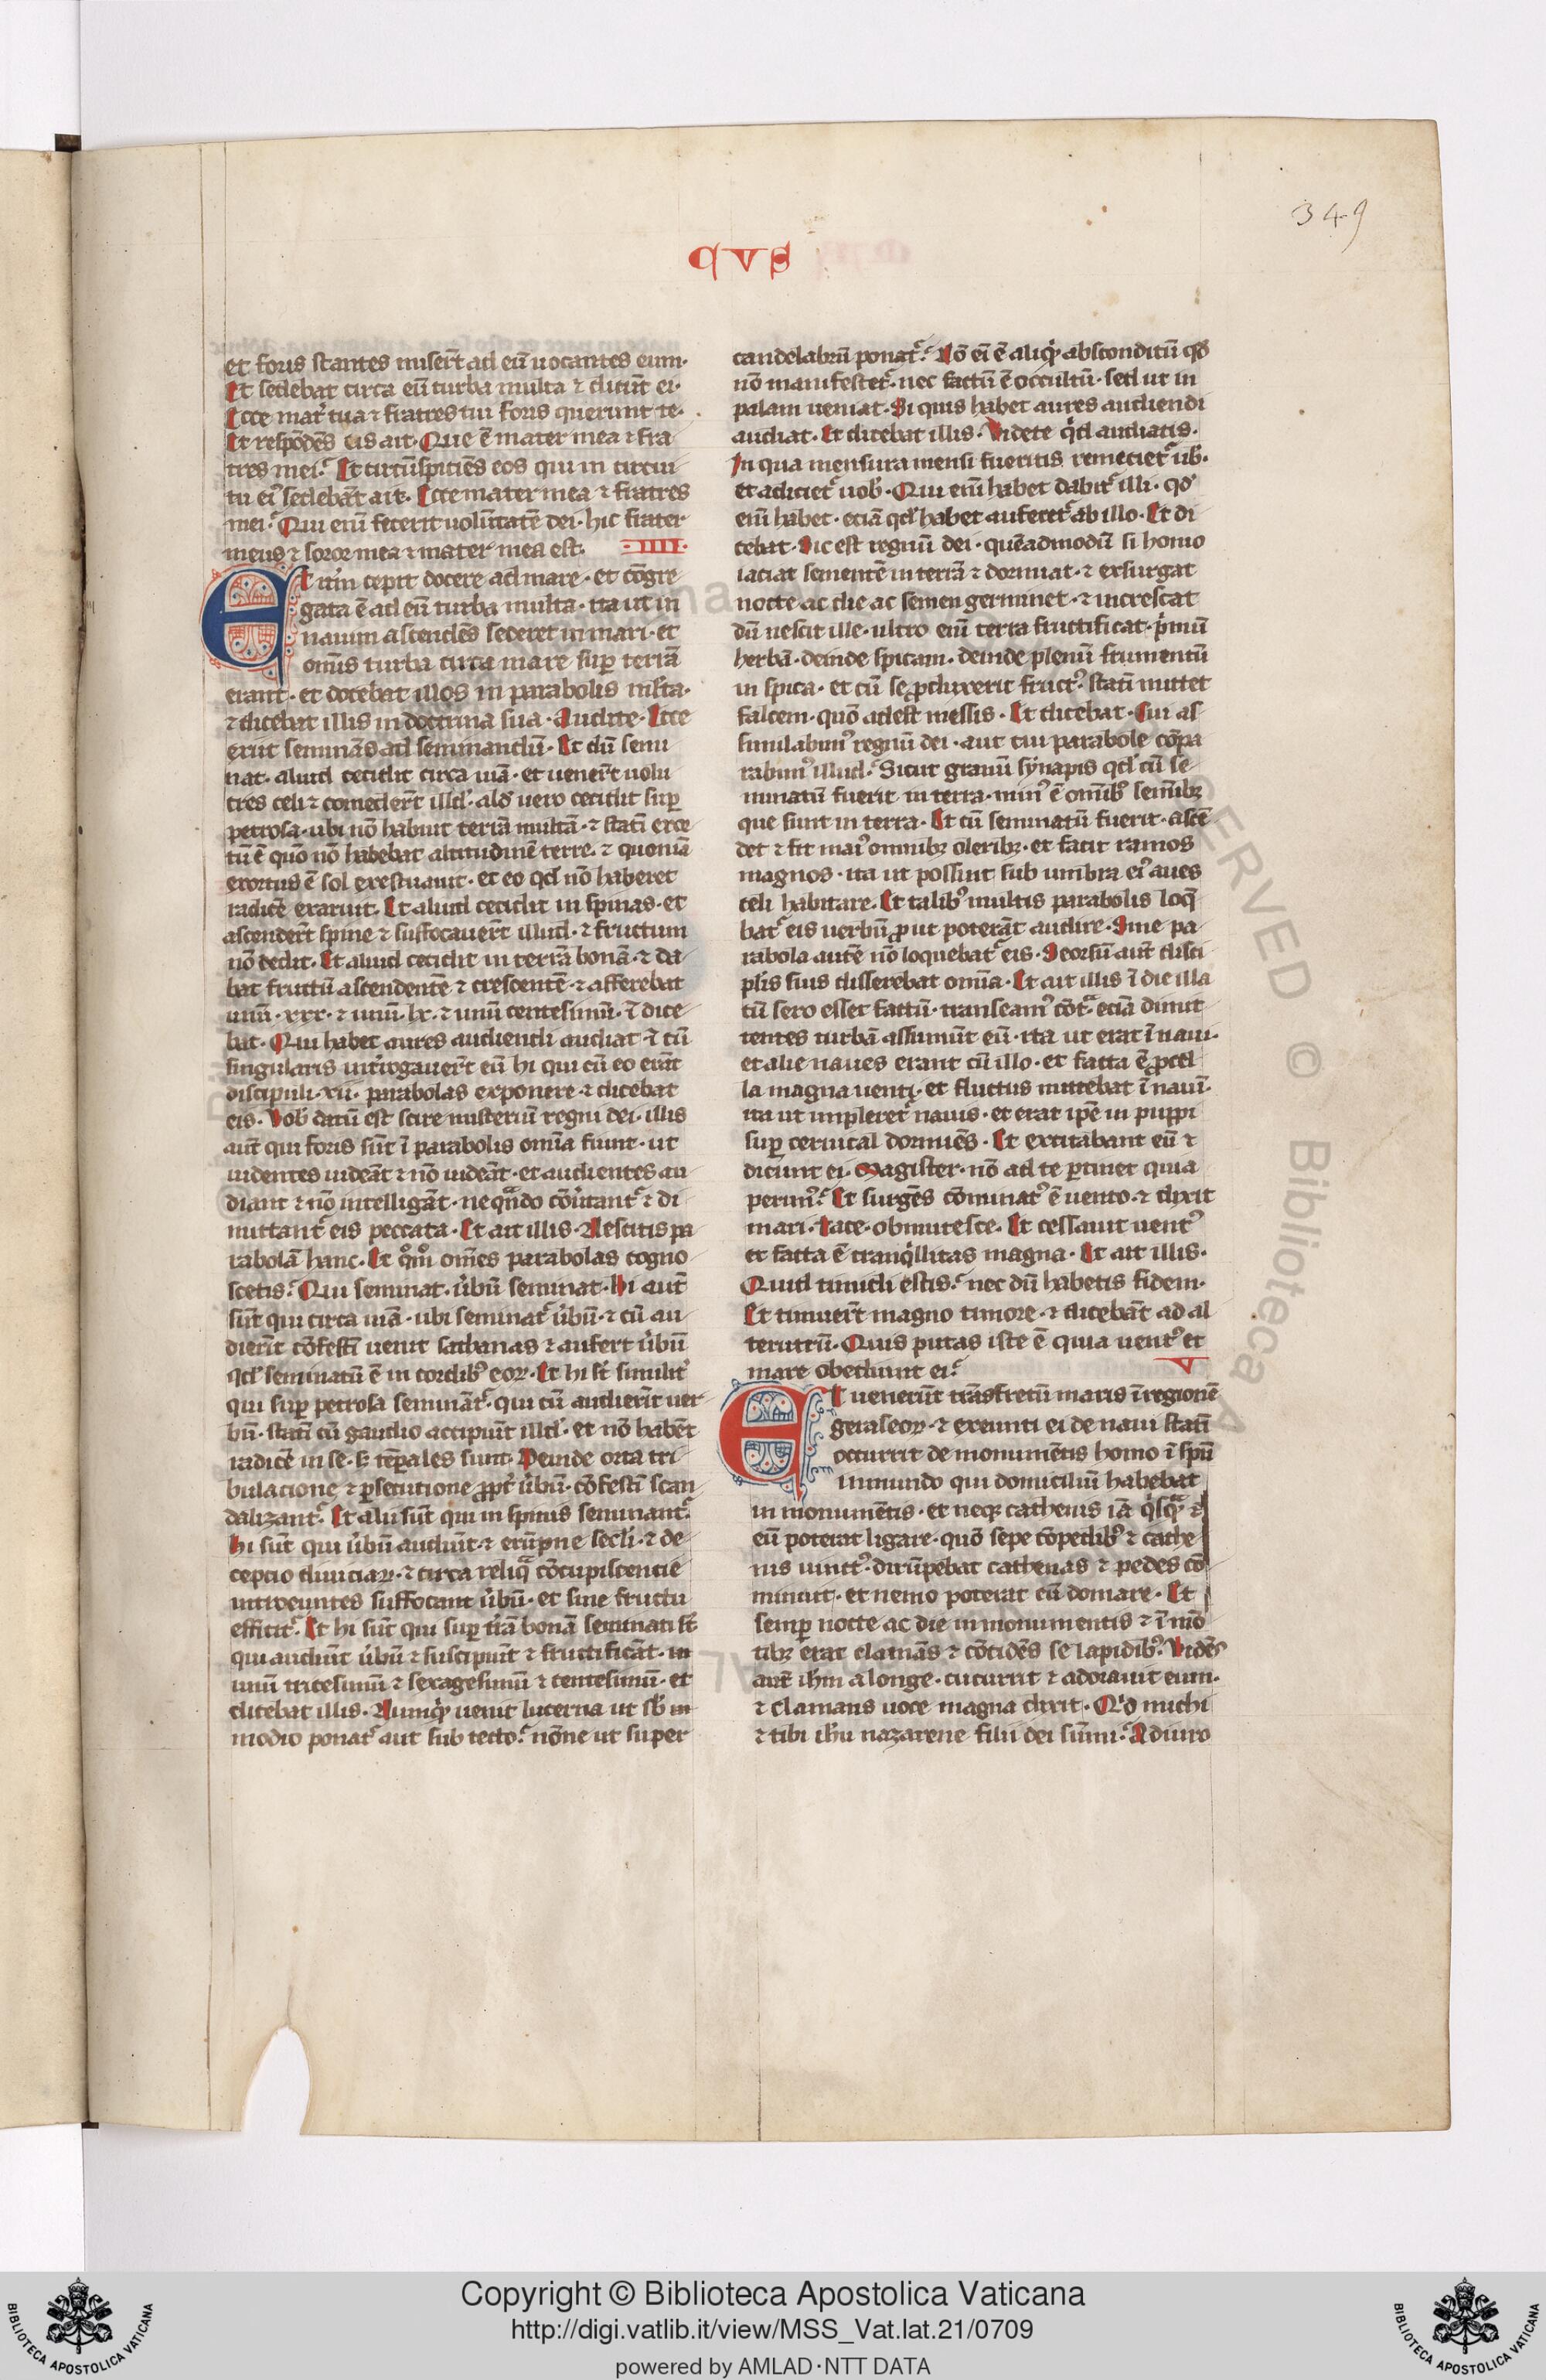 349
CVS
et foris stantes misert̄ ad eū uocantes eum·
Et sedebat circa eū turba multa ⁊ dicūt ei·
Ecce mat̉ tua ⁊ fratres tui foris querunt te·
Et respōdēs eis ait· Que ē mater mea ⁊ fra
tres mei? Et circūspiciēs eos qui in circui
tu ei᾽ sedebāt ait· Ecce mater mea ⁊ fratres
mei· Qui enī fecerit uolūtatē dei· hic frater
meus ⁊ soror mea ⁊ mater mea est· ·IIII·
Et itm̄ cepit docere ad mare· et cōgre
gata ē ad eū turba multa· ita ut in
nauim ascendēs sederet in mari· et
omīs turba circa mare sup̄ terrā
erant· et docebat illos in parabolis ml̄ta·
⁊ dicebat illis in doctrina sua· Audite· Ecce
exiit seminās ad seminandū· Et dū semi
nat· aliud cecidit circa uiā· et uenert̄ uolu
tres celi ⁊ comedert̄ illd᾽· ald᾽ uero cecidit sup̄
petrosa· ubi nō habuit terrā multā· ⁊ statī exor
tū ē quō nō habebat altitudinē terre· ⁊ quoniā
exortus ē sol exestuauit· et eo qd᾽ nō haberet
radicē exaruit· Et aliud cecidit in spinas· et
ascendert̄ spine ⁊ suffocauert̄ illud· ⁊ fructum
nō dedit· Et aliud cecidit in terrā bonā· ⁊ da
bat fructū ascendentē ⁊ crescentē· ⁊ afferebat
unū· xxx· ⁊ unū· lx· ⁊ unū centesimū· ⁊ dice
bat· Qui habet aures audiendi audiat ⁊ cū
singularis int̉rogauert̄ eū hi qui cū eo erāt
discipuli· xii· parabolas exponere ⁊ dicebat
eis· Vob᾽ datū est scire misteriū regni dei· illis
aut̄ qui foris sūt ī parabolis omīa fiunt· ut
uidentes uideāt ⁊ nō uideāt· et audientes au
diant ⁊ nō intelligāt· neqn̄do cōủtant᾽ ⁊ di
mittant᾽ eis peccata· Et ait illis· Nescitis pa
rabolā hanc· Et qm̊o om̄es parabolas cogno
scetis? Qui seminat· ủbū seminat· Hi aut̄
sūt qui circa uiā· ubi seminat᾽ ủbū· ⁊ cū au
dierīt cōfestī uenit sathanas ⁊ aufert ủbū
qd᾽ seminatū ē in cordib᾽ eoꝝ· Et hi st̄ similit̉
qui sup̄ petrosa semināt᾽· qui cū audierīt uer
bū· statī cū gaudio accipiūt illd᾽· et nō habēt
radicē in se· ꝫ tēp̄ales sunt· Deinde orta tri
bulacione ⁊ ꝑsecutione ꝓpt̉ ủbū· cōfestī scan
dalizant᾽· Et alii sūt qui in spinis seminant᾽·
Hi sūt qui ủbū audiūt· ⁊ erūpne secl̄i· ⁊ de
cepcio diuiciaꝝ· ⁊ circa reliq̄ cōcupiscentie
introeuntes suffocant ủbū· et sine fructu
efficit᾽· Et hi sūt qui sup̄ t̉rā bonā seminati st̄
qui audiūt ủbū ⁊ suscipiūt ⁊ fructificāt· in
unū tricesimū ⁊ sexagesimū ⁊ centesimū· et
dicebat illis· Nunqͥd uenit lucerna ut sb᾽ in
modio ponat᾽ aut sub lecto? nōne ut super
candelabrū ponat᾽? Nō eī ē aliqͥd absconditū qd᾽
nō manifestet᾽· nec factū ē occultū· sed ut in
palam ueniat· Si quis habet aures audiendi
audiat· Et dicebat illis· Videte qͥd audiatis·
In qua mensura mensi fueritis remeciet᾽ ub̄·
et adiciet᾽ uob᾽· Qui enī habet dabit᾽ illi· qd᾽
enī habet· eciā qd᾽ habet auferet᾽ ab illo· Et di
cebat· Sic est regnū dei· quēadmodū si homo
iaciat sementē in terrā ⁊ dormiat· ⁊ exsurgat
nocte ac die ac semen germinet· ⁊ increscat
dū nescit ille· ultro enī terra fructificat· p̉mū
herbā· deinde spicam· deinde plenū frumentū
in spica· et cū se ꝓduxerit fruct᾽· statī mittet
falcem· quō adest messis· Et dicebat· Cui as
similabim᾽ regnū dei· aut cui parabole cōpa
rabim᾽ illud? Sicut granū synapis qd᾽ cū se
minatū fuerit in terra· min᾽ ē omīb᾽ semībꝫ
que sunt in terra· Et cū seminatū fuerit· ascē
det ⁊ fit mai᾽ omnibꝫ oleribꝫ· et facit ramos
magnos· ita ut possint sub umbra ei᾽ aues
celi habitare· Et talib᾽ multis parabolis loq̄
bat᾽ eis uerbū ꝓut poterāt audire· Sine pa
rabola autē nō loquebat᾽ eis· Seorsū aut̄ disci
pl̄is suis disserebat omīa· Et ait illis ī die illa
cū sero esset factū· transeam᾽ cōt᾽· eciā dimit
tentes turbā assumūt eū· ita ut erat ī naui·
et alie naues erant cū illo· et facta ē ꝓcel
la magna uenti· et fluctus mittebat ī nauī·
ita ut impleret᾽ nauis· et erat ip̄e in puppi
sup̄ ceruical dormiēs· Et excitabant eū ⁊
dicunt ei· Magister· nō ad te ꝑtinet quia
perim᾽? Et surgēs cōminat᾽ ē uento· ⁊ dixit
mari· Tace· obmutesce· Et cessauit uent᾽
et facta ē tranqͥllitas magna· Et ait illis·
Quid timidi estis? nec dū habetis fidem·
Et timuert̄ magno timore· ⁊ dicebāt ad al
terutrū· Quis putas iste ē quia uent᾽ et
mare obediunt ei? V
Et uenerūt trāsfretū maris ī regionē
geraseoꝝ· ⁊ exeunti ei de naui statī
occurrit de monumētis homo ī spū
immundo qui domiciliū habebat
in monumētis· et neqꝫ cathenis iā qͥsq̄ᵃ
eū poterat ligare· quō sepe cōpedib᾽ ⁊ cathe
nis uinct᾽· dirūpebat cathenas ⁊ pedes cō
minuit· et nemo poterat eū domare· Et
semp̄ nocte ac die in monumentis ⁊ ī mō
tibꝫ erat clamās ⁊ cōcidēs se lapidib᾽· Vidēs
aut̄ ihm̄ a longe· cucurrit ⁊ adorauit eum·
⁊ clamans uoce magna dixit· Qͥd michi
⁊ tibi ihū nazarene filii dei sūmi? Adiuro
Copyright © Biblioteca Apostolica Vaticana
http://digi.vatlib.it/view/MSS_Vat.lat.21/0709
powered by AMLAD·NTT DATA
BIBLIOTECA APOSTOLICA VATICANA
BIBLIOTECA APOSTOLICA VATICANA